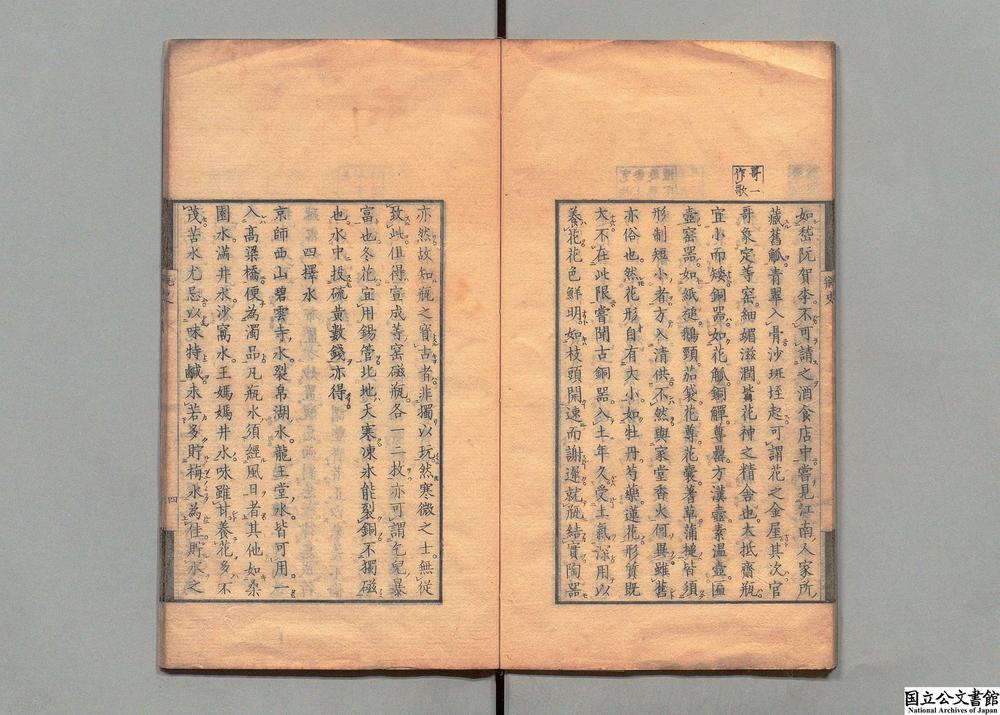 哥一
作歌
如嵇阮賀李不可請之酒食店中嘗見江南人家所
藏舊觚青翠入骨沙斑垤起可謂花之金屋其次官
哥象定等窑細媚滋潤皆花神之精舍也大抵齋瓶
宜小而矮銅器如花觚銅觶尊罍方漢壺素温壺匾
壺窑器如紙槌鵝頸茄袋花尊花囊蓍草蒲槌皆須
形制短小者方入清供不然與家堂香火何異雖舊
亦俗也然花形自有大小如牡丹芍藥蓮花形質既
大不在此限嘗聞古銅器入土年久受土氣深用以
養花花色鮮明如枝頭開速而謝遲就瓶結實陶器
亦然故知瓶之寳古者非獨以玩然寒微之士無從
致此但得宣成等窑磁瓶各一二枚亦可謂乞兒暴
富也冬花宜用錫管北地天寒凍氷能裂銅不獨磁
也水中投硫黄數錢亦得
四擇水
京師西山碧雲寺水裂帛湖水龍王堂水皆可用一
入高梁橋便為濁品凡瓶水須經風日者其他如桑
園水滿井水沙窩水王媽媽井水味雖甘養花多不
茂苦水尤忌以味特鹹未若多貯梅水為佳貯水之
四
国立公文書館
National Archives of Japan